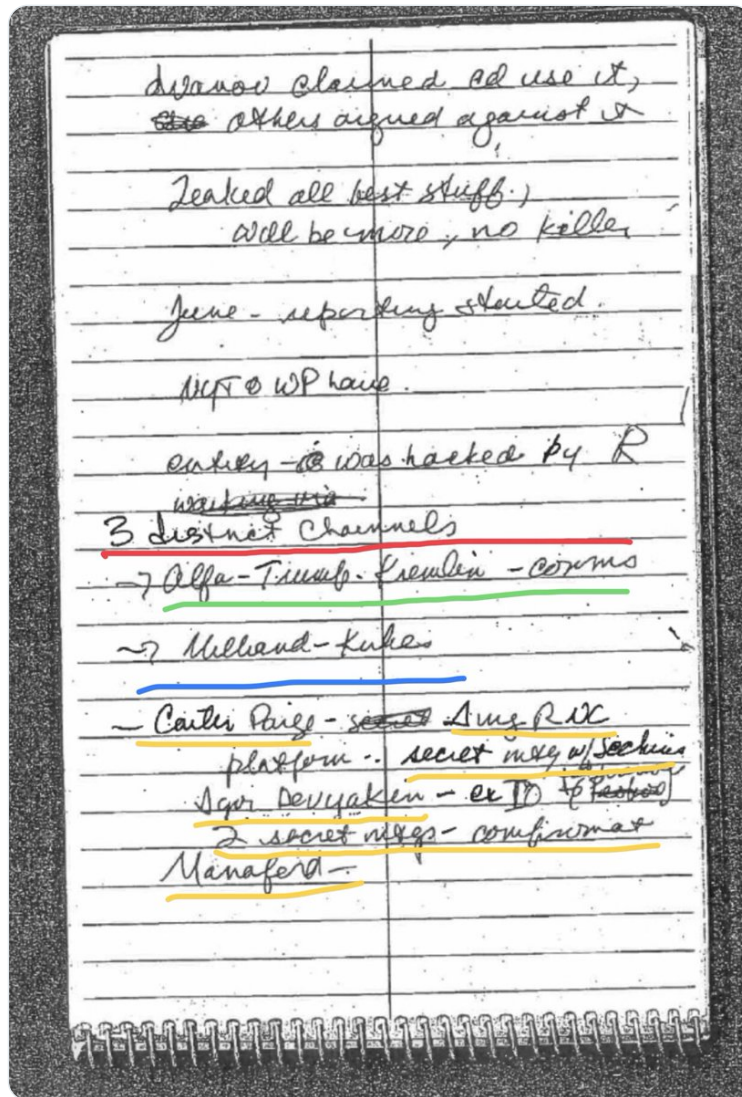 Ivanov claimed cd use it,
others argued against it
Leaked all best stuff,
will be more, no killer
June - reporting started.
NYT & WP have.
entity - was hacked by R
working via
3 distinct channels
→ Alfa-Trump-Kremlin - comms
→ Millian - Kukes
- Carter Page - secret
RNC
platform .. secret mtg w/ Sechin
Igor Devyaken - ex IO
2 secret mtgs - confirmat
Manaford -